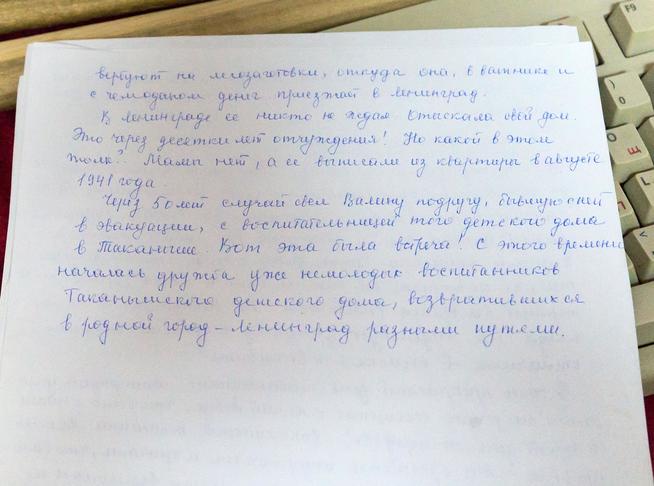 вербуют на лесозаготовки, откуда она, в ватнике и
с чемоданом денег приезжает в Ленинград.
В Ленинграде ее никто не ждал. Отыскала свой дом.
Это через десятки лет отчуждения! Но какой в этом
толк?. Мамы нет, а ее выписали из квартиры в августе
1941 года.
Через 50 лет случай свел Валину подругу, бывшую с ней
в эвакуации, с воспитательницей того детского дома
в Таканыше. Вот эта была встреча! С этого времени
началась дружба уже немолодых воспитанников
Таканышского детского дома, возвратившихся
в родной город - Ленинград разными путями.
F9
)
0
О
Щ